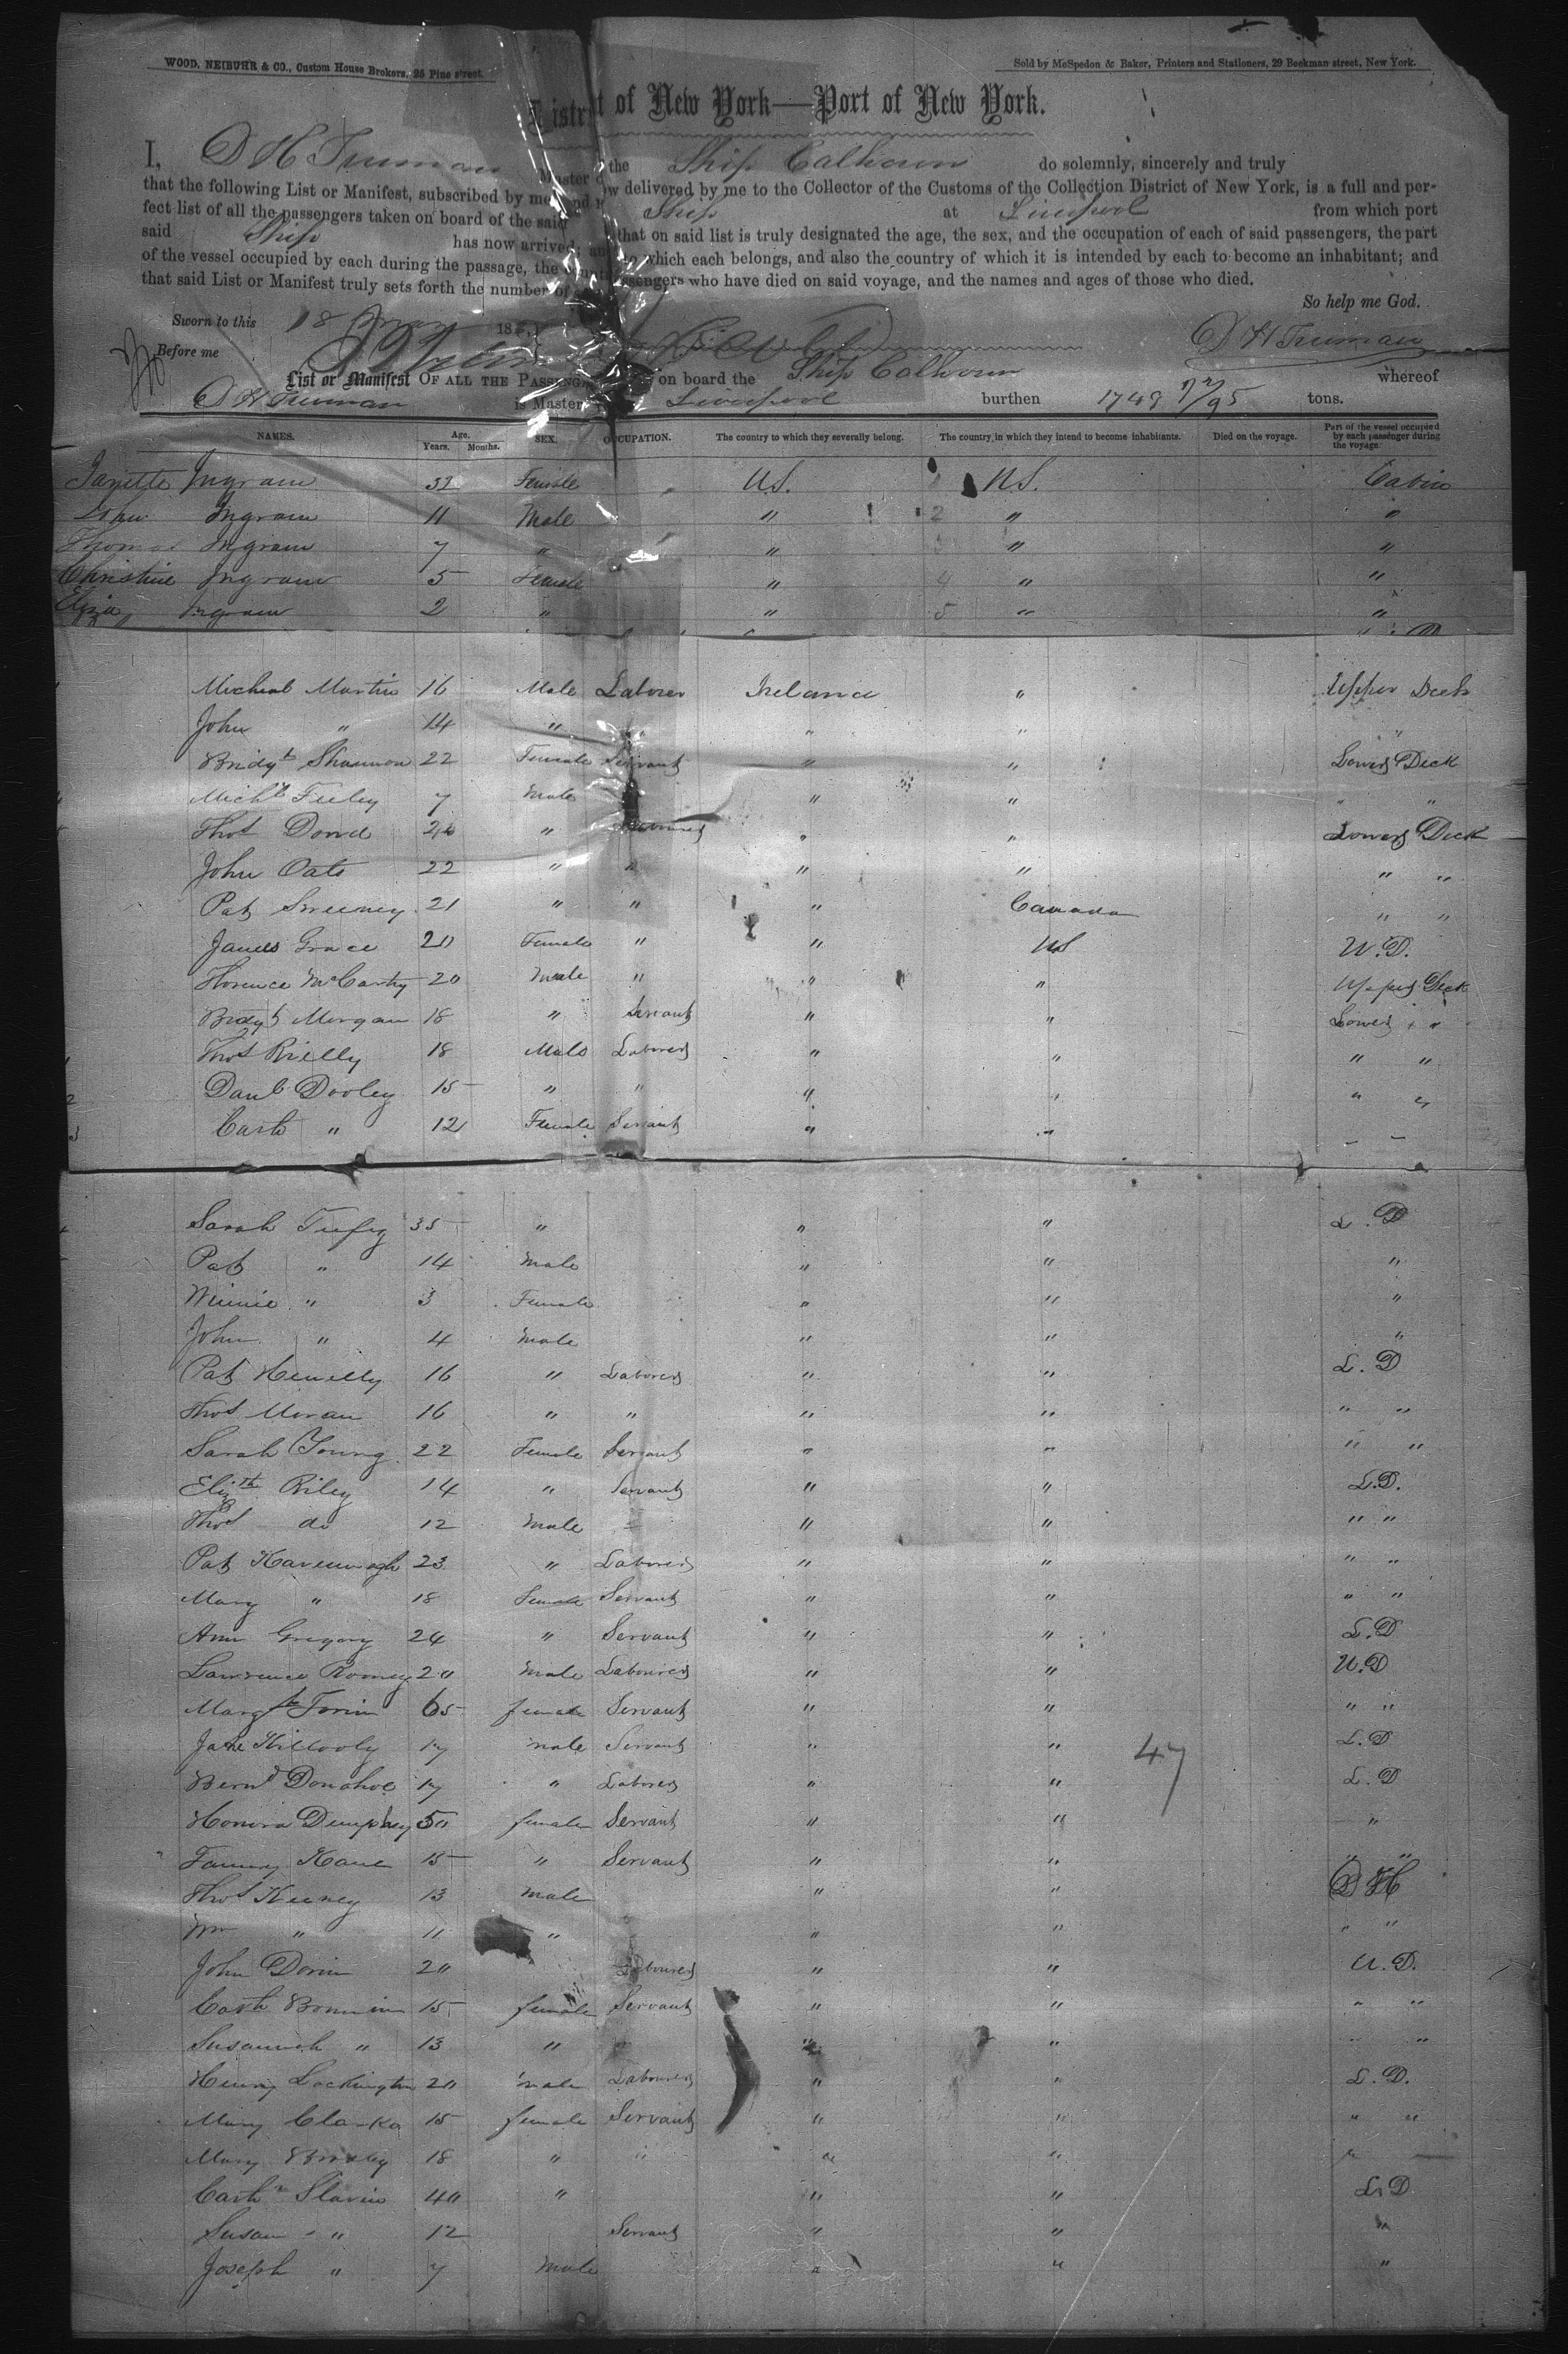 WOOD, NEIBUHR & CO., Custom House Brokers, 25 Pine street.
Sold by McSpedon & Baker, Printers and Stationers, 29 Beekman street, New York.
District of New York—Port of New York.
I, D H Truman Master of the Ship Calhoun do solemnly, sincerely and truly
that the following List or Manifest, subscribed by me and now delivered by me to the Collector of the Customs of the Collection District of New York, is a full and per-
fect list of all the passengers taken on board of the said Ship at Liverpool from which port
said Ship has now arrived; and that on said list is truly designated the age, the sex, and the occupation of each of said passengers, the part
of the vessel occupied by each during the passage, the to which each belongs, and also the country of which it is intended by each to become an inhabitant; and
that said List or Manifest truly sets forth the number of passengers who have died on said voyage, and the names and ages of those who died.
So help me God.
Sworn to this 18 185
D H Truman
Before me
List or Manifest OF ALL THE PASSENG on board the Ship Calhoun whereof
D H Truman is Master Liverpool burthen 1749 72/95 tons.
NAMES. Age. Years. Months. SEX. OCCUPATION. The country to which they severally belong. The country in which they intend to become inhabitants. Died on the voyage. Part of the vessel occupied by each passenger during the voyage.
Janette Ingram 32 Female U.S. U.S. Cabin
John Ingram 11 Male " 2 " "
Thomas Ingram 7 " " 3 " "
Christine Ingram 5 Female " 4 " "
Eliza Ingram 2 " " 5 " "
Micheal Martin 16 Male Laborer Ireland " Upper Deck
John " 14 " " " " "
Bridgt Shannon 22 Female Servant " " Lower Deck
Michl Feeley 7 Male " " " "
Thos Dowd 20 " Labourer " " Lower Deck
John Oats 22 " " " " " "
Pat Sweeney 21 " " " Canada " "
James Grace 20 Female " " US U.D.
Florence McCarthy 20 Male " " " Upper Deck
Bridgt Morgan 18 " Servant " " Lower "
Thos Rielly 18 Male Laborer " " " "
Danl Dooley 15 " " " " " "
Cath " 12 Female Servant " " " "
Sarah 35 " " " L.D
Pat " 14 Male " " "
Winnie " 3 Female " " "
John " 4 Male " " "
Pat 16 " Laborer " " L.D
Thos Moran 16 " " " " " "
Sarah Young 22 Female Servant " " " "
Elizth Riley 14 " Servant " " L.D.
Thos do 12 Male " " " " "
Pat Kavenough 23 " Laborer " " " "
Mary " 18 Female Servant " " " "
Ann Gregory 24 " Servant " " L.D
Lawrence Rooney 20 Male Labourer " " U.D
Margt 65 female Servant " " " "
Jane Killooly 17 male Servant " " L.D
47
Bernd Donahoe 17 " Laborer " " L.D
Honora Dumphey 50 female Servant " " "
Fanny Kane 15 " Servant " " " "
Thos Keeney 13 male " "
Wm " 11 " " " " "
John Dorin 20 Labourer " " U.D.
Cath 15 female Servant " " " "
Susannah " 13 " " " " " "
Henry Lockington 20 male Labourer " " L.D.
Mary Clarke 15 female Servant " " " "
Mary 18 " " " " "
Cath Slavin 40 " " " L.D
Susan " 12 Servant " " "
Joseph " 7 Male " " "